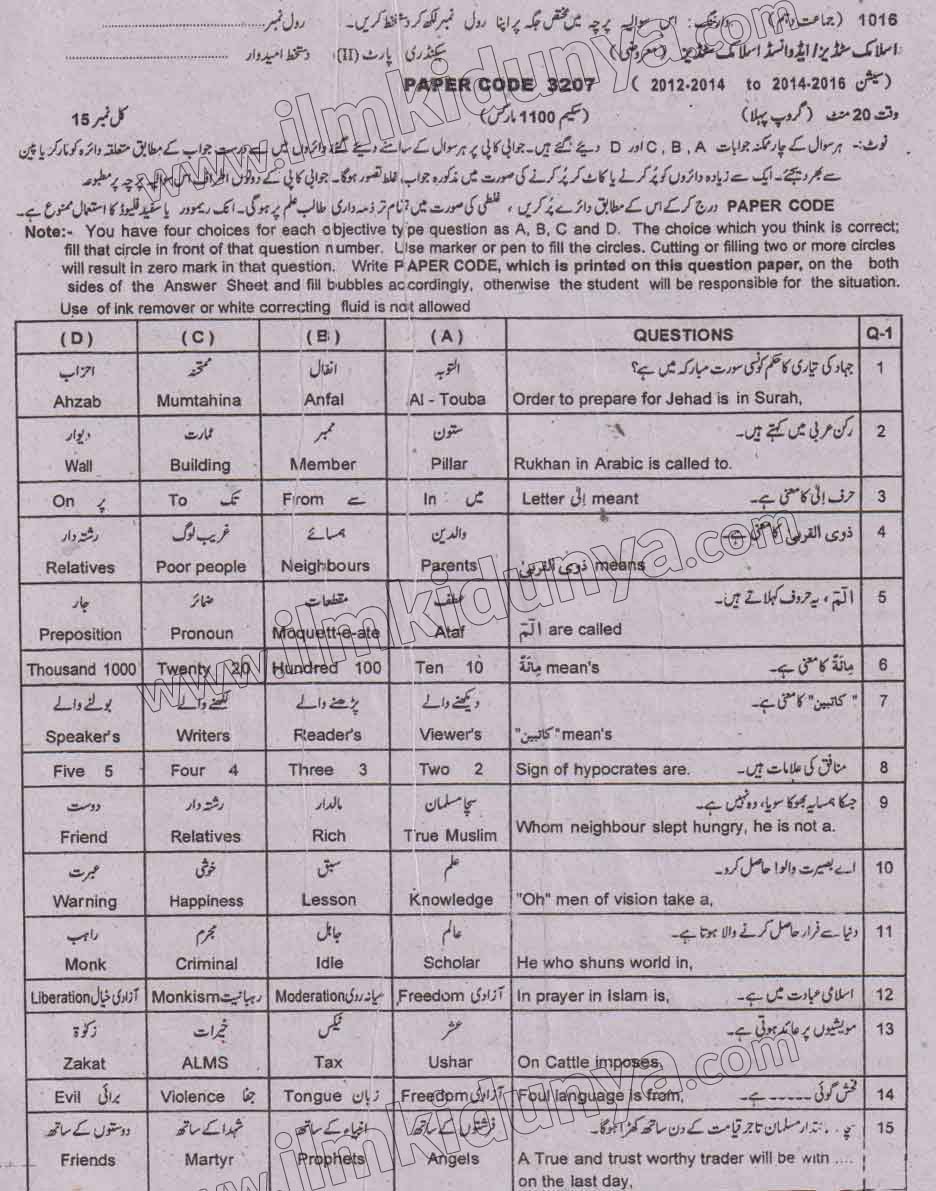 1016 (جماعت دہم) وارننگ: اس سوالیہ پرچہ میں مختص جگہ پر اپنا رول نمبر لکھ کر دستخط کریں۔ رول نمبر
اسلامک سٹڈیز/ایڈوانسڈ اسلامک سٹڈیز (معروضی) سیکنڈری پارٹ (II) دستخط امیدوار
(سیشن 2014-2016 to 2012-2014) PAPER CODE 3207
وقت 20 منٹ (گروپ پہلا) (سکیم 1100 مارکس) کل نمبر 15
نوٹ:- ہر سوال کے چار ممکنہ جوابات C, B, A اور D دیئے گئے ہیں۔ جوابی کاپی پر ہر سوال کے سامنے دیئے گئے دائروں میں سے درست جواب کے مطابق متعلقہ دائرہ کو مارکر یا پین
سے بھر دیجئے۔ ایک سے زیادہ دائروں کو پُر کرنے یا کاٹ کر پُر کرنے کی صورت میں مذکورہ جواب غلط تصور ہوگا۔ جوابی کاپی کے دونوں اطراف اس سوالیہ پرچہ پر مطبوعہ
PAPER CODE درج کر کے اس کے مطابق دائرے پُر کریں، غلطی کی صورت میں تمام تر ذمہ داری طالب علم پر ہوگی۔ انک ریموور یا سفید فلیوڈ کا استعمال ممنوع ہے۔
Note:- You have four choices for each objective type question as A, B, C and D. The choice which you think is correct;
fill that circle in front of that question number. Use marker or pen to fill the circles. Cutting or filling two or more circles
will result in zero mark in that question. Write PAPER CODE, which is printed on this question paper, on the both
sides of the Answer Sheet and fill bubbles accordingly, otherwise the student will be responsible for the situation.
Use of ink remover or white correcting fluid is not allowed
(D) (C) (B) (A) QUESTIONS Q-1
احزاب ممتحنہ انفال التوبہ جہاد کی تیاری کا حکم کونسی سورت مبارکہ میں ہے؟ 1
Ahzab Mumtahina Anfal Al - Touba Order to prepare for Jehad is in Surah,
دیوار عمارت ممبر ستون رکن عربی میں کہتے ہیں۔ 2
Wall Building Member Pillar Rukhan in Arabic is called to.
On پر To تک From سے In میں Letter اِلٰی meant حرف اِلٰی کا معنی ہے۔ 3
رشتہ دار غریب لوگ ہمسائے والدین ذوی القربیٰ کا معنی ہے۔ 4
Relatives Poor people Neighbours Parents ذوی القربیٰ means
جار ضمائر مقطعات عطف الٓمّٓ، یہ حروف کہلاتے ہیں۔ 5
Preposition Pronoun Moquett-e-ate Ataf الٓمّٓ are called
Thousand 1000 Twenty 20 Hundred 100 Ten 10 مِائَةٌ mean's مِائَةٌ کا معنی ہے۔ 6
بولنے والے لکھنے والے پڑھنے والے دیکھنے والے "کاتبین" کا معنی ہے۔ 7
Speaker's Writers Reader's Viewer's "کاتبین" mean's
Five 5 Four 4 Three 3 Two 2 Sign of hypocrates are. منافق کی علامات ہیں۔ 8
دوست رشتہ دار مالدار سچا مسلمان جسکا ہمسایہ بھوکا سویا، وہ نہیں ہے۔ 9
Friend Relatives Rich True Muslim Whom neighbour slept hungry, he is not a.
عبرت خوشی سبق علم اے بصیرت والو! حاصل کرو۔ 10
Warning Happiness Lesson Knowledge "Oh" men of vision take a,
راہب مجرم جاہل عالم دنیا سے فرار حاصل کرنے والا ہوتا ہے۔ 11
Monk Criminal Idle Scholar He who shuns world in,
Liberation آزادی خیال Monkism رہبانیت Moderation میانہ روی Freedom آزادی In prayer in Islam is, اسلامی عبادت میں ہے۔ 12
زکوٰة خیرات ٹیکس عشر مویشیوں پر عائد ہوتی ہے۔ 13
Zakat ALMS Tax Ushar On Cattle imposes,
Evil برائی Violence جفا Tongue زبان Freedom آزادی Foul language is from, فحش گوئی ------ ہے۔ 14
دوستوں کے ساتھ شہدا کے ساتھ انبیاء کے ساتھ فرشتوں کے ساتھ مسلمان تاجر قیامت کے دن ساتھ کھڑا ہوگا۔ 15
Friends Martyr Prophets Angels A True and trust worthy trader will be with ....
on the last day,
www.ilmkidunya.com
www.ilmkidunya.com
www.ilmkidunya.com